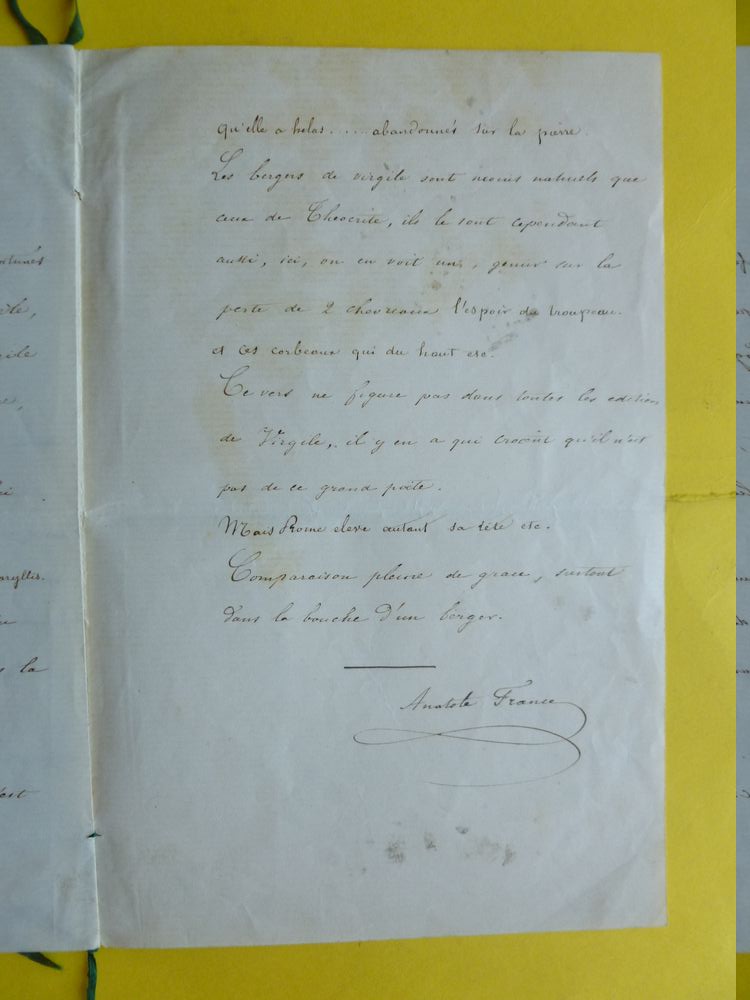 qu'elle a helas ..... abandonnés sur la pierre.
Les bergers de virgile sont moins naturels que
ceux de Theocrite, ils le sont cependant
aussi, ici, on en voit un, gemir sur la
perte de 2 chevreaux l'espoir du troupeau.
et ces corbeaux qui du haut etc.
Ce vers ne figure pas dans toutes les edition
de Virgile, il y en a qui croient qu'il n'est
pas de ce grand poëte.
Mais Rome eleve autant sa tête etc.
Comparaison pleine de grace, surtout
dans la bouche d'un berger.
Anatole France
aryllis.
la
est